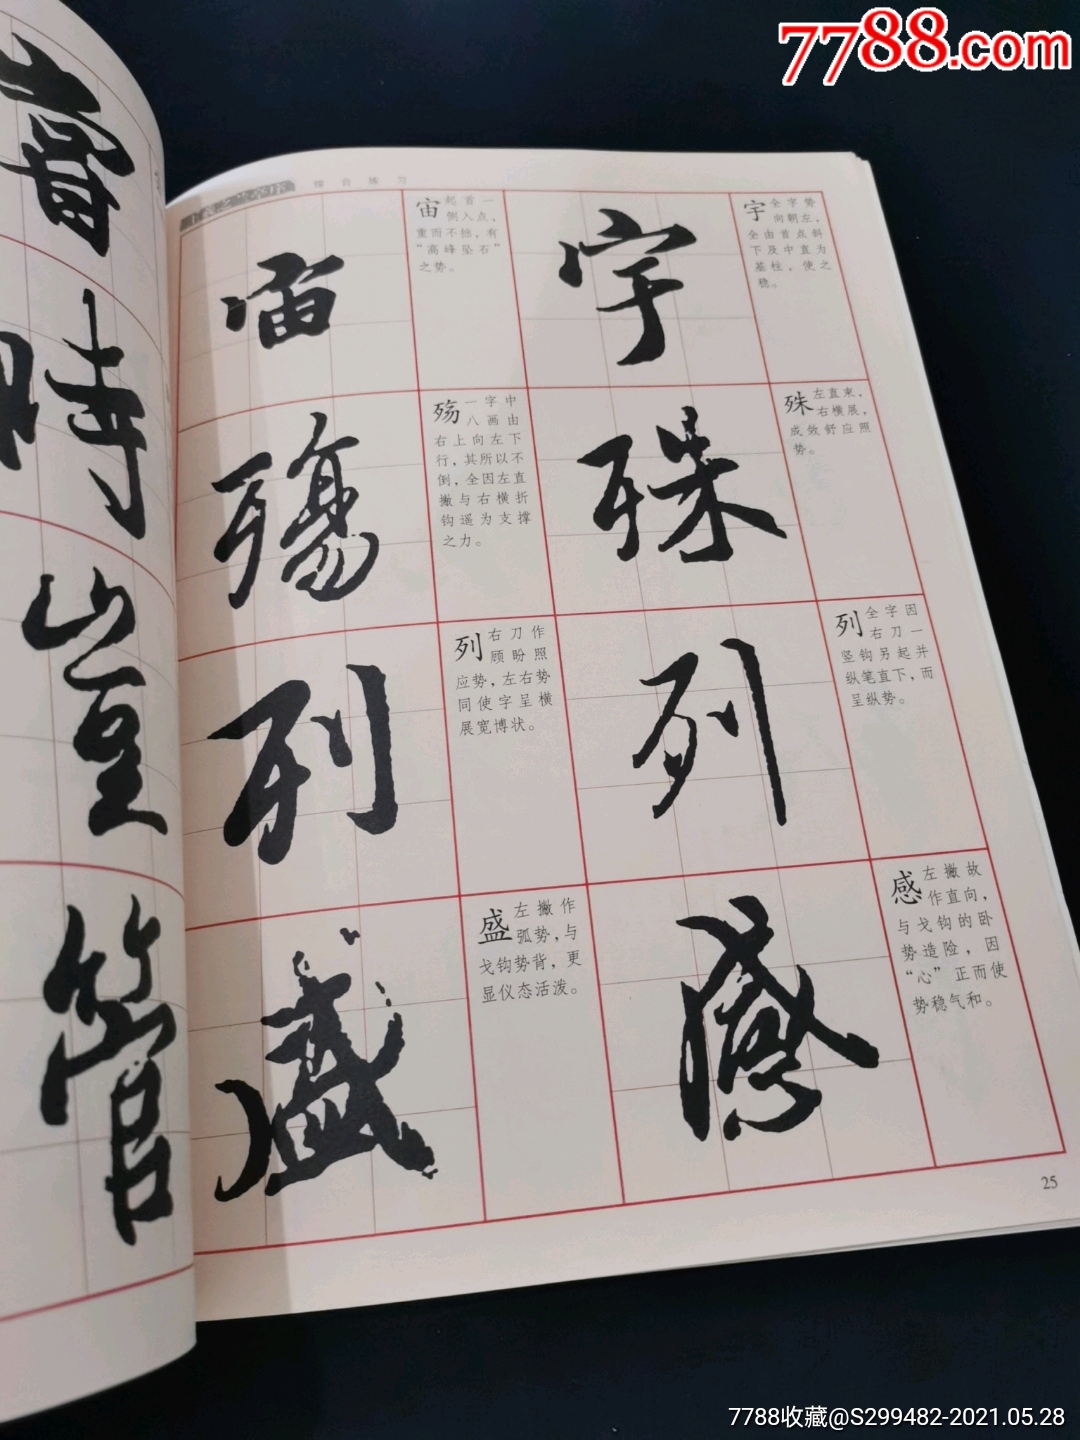 7788.com
王羲之兰亭序 综合练习
宇
宇 全字势
向朝左，
全由首点斜
下及中直为
基柱，使之
稳。
宙
宙 起首一
侧入点，
重而不拙，有
“高峰坠石”
之势。
殊
殊 左直束，
右横展，
成敛舒应照
势。
殇
殇 一字中
八画由
右上向左下
行，其所以不
倒，全因左直
撇与右横折
钩遥为支撑
之力。
列
列 全字因
右刀一
竖钩另起并
纵笔直下，而
呈纵势。
列
列 右刀作
顾盼照
应势，左右势
同使字呈横
展宽博状。
感
感 左撇故
作直向，
与戈钩的卧
势造险，因
“心”正而使
势稳气和。
盛
盛 左撇作
弧势，与
戈钩势背，更
显仪态活泼。
時
豈
管
25
7788收藏@S299482-2021.05.28